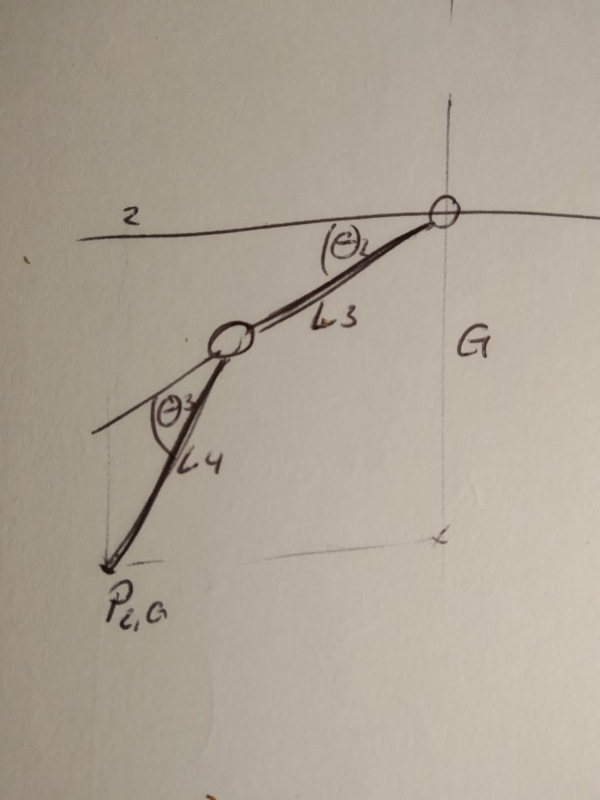 2
θ2
L3
G
θ3
L4
P2,G